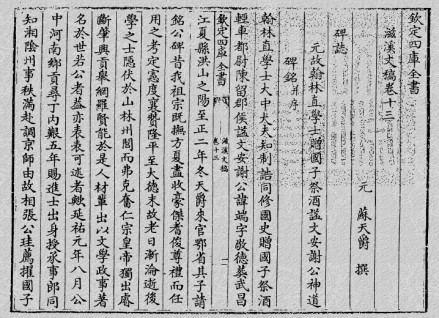 欽定四庫全書
滋溪文稿卷十三
元 蘇天爵 撰
碑誌
元故翰林直學士贈國子祭酒諡文安謝公神道
碑銘并序
翰林直學士大中大夫知制誥同修國史贈國子祭酒
輕車都尉陳留郡侯諡文安謝公諱端字敬德葬武昌
欽定四庫全書
滋溪文稿
卷十三
一
江夏縣洪山之陽至正二年冬天爵來官鄂省其子請
銘公碑昔我祖宗既撫方夏盡收豪傑耆俊尊禮而任
用之考定憲度襄贊隆平至大德末故老日漸淪逝後
學之士隱伏於山林州閭而弗克奮仁宗皇帝獨出睿
斷肇興貢舉網羅賢能於是人材輩出以文學政事著
名於世若公者蓋亦表表可述者歟延祐元年八月公
中河南鄉貢尋丁內艱五年賜進士出身授承事郎同
知湘陰州事秩滿赴調京師由故相張公珪薦擢國子